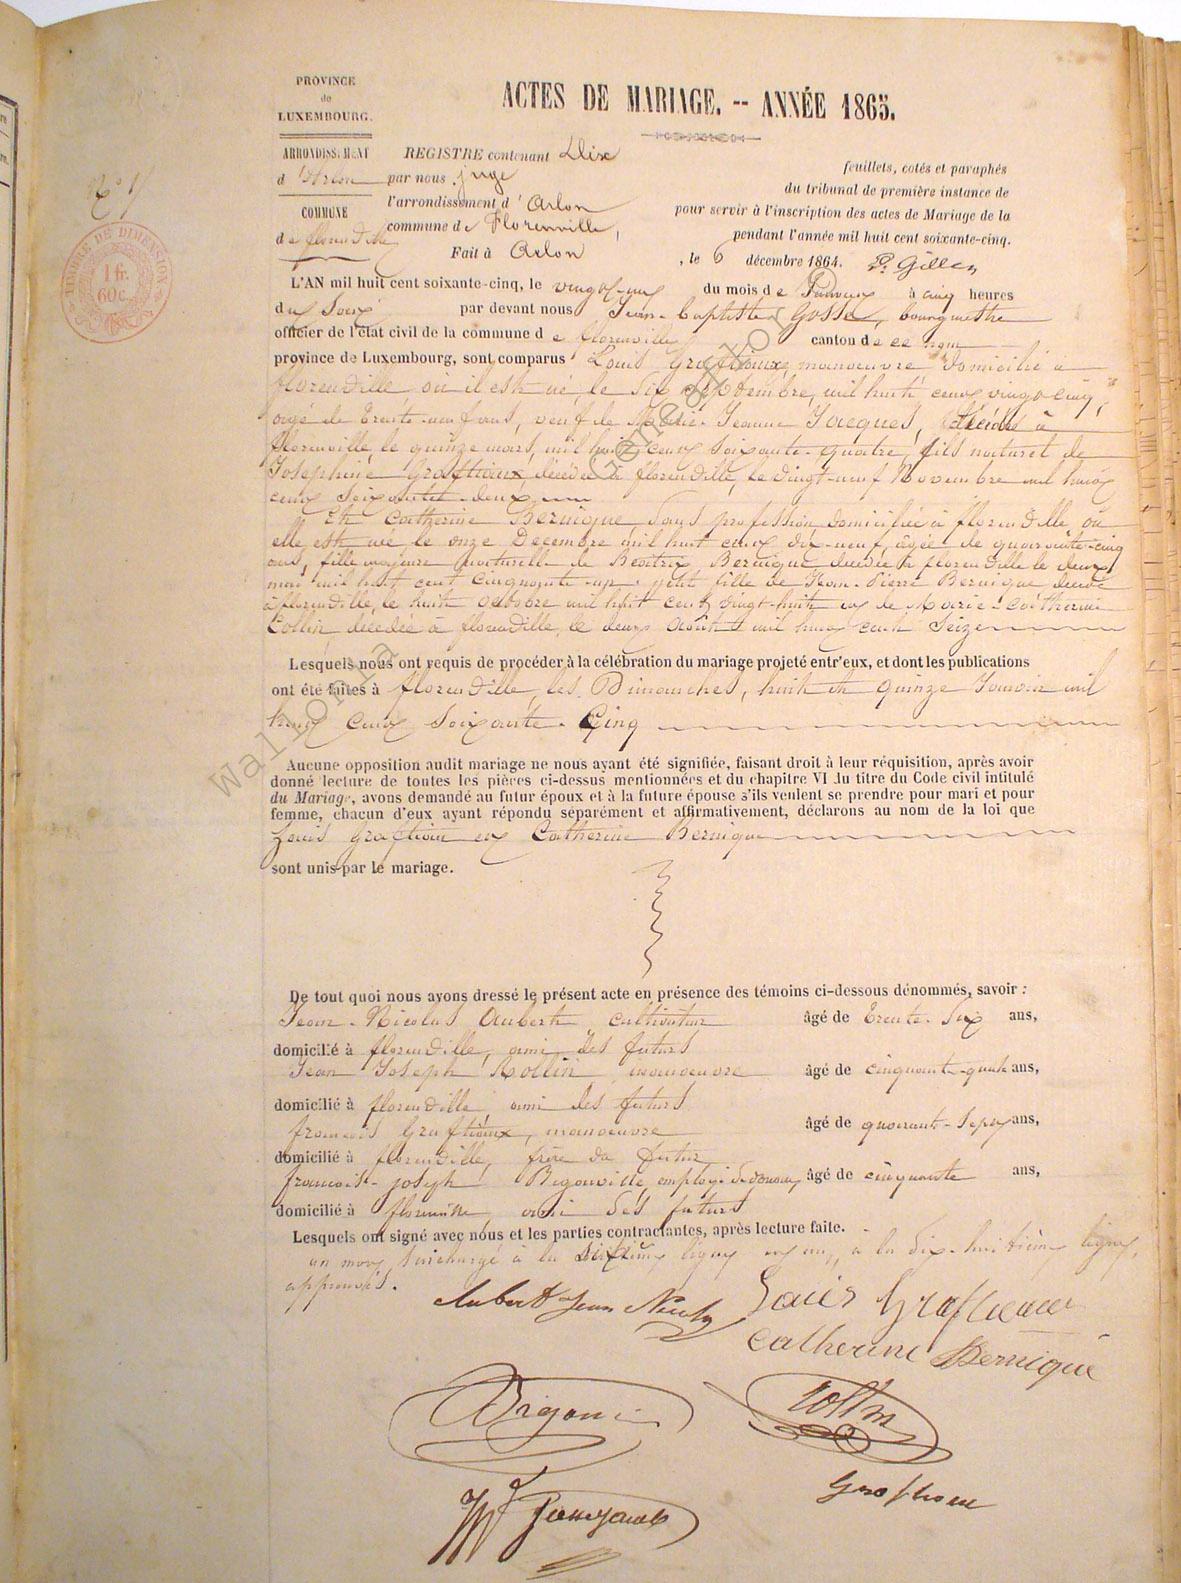 PROVINCE
de
LUXEMBOURG.
ARRONDISSEMENT
d'Arlon
COMMUNE
de florenville
N° 1
TIMBRE DE DIMENSION
1 fr.
60 c.
ACTES DE MARIAGE. -- ANNÉE 1865.
REGISTRE contenant Dix feuillets, cotés et paraphés
par nous juge du tribunal de première instance de
l'arrondissement d'Arlon pour servir à l'inscription des actes de Mariage de la
commune de Florenville, pendant l'année mil huit cent soixante-cinq.
Fait à Arlon, le 6 décembre 1864.
L'AN mil huit cent soixante-cinq, le vingt-un du mois de Janvier à cinq heures
du Soir par devant nous Jean-Baptiste bourgmestre
officier de l'état civil de la commune de florenville canton de ce nom
province de Luxembourg, sont comparus Louis Graftiaux manoeuvre domicilié à
florenville où il est né, le Six Septembre, mil huit cent vingt-cinq,
âgé de trente-neuf ans, veuf de Marie-Jeanne Jacques, décédée à
florenville, le quinze mars, mil huit cent soixante-quatre, fils naturel de
Josephine Graftiaux, décédée à florenville, le vingt-neuf Novembre mil huit
cent soixante-deux
Et Catherine Bernique, Sans profession, domiciliée à florenville, où
elle est née, le onze Décembre mil huit cent dix-neuf, âgée de quarante-cinq
ans, fille majeure naturelle de Beatrix Bernique décédée à florenville le deux
mai mil huit cent cinquante-un, petit fille de Jean-Pierre Bernique décédé
à florenville, le huit octobre mil huit cent vingt-huit et de Marie-Catherine
Collin décédée à florenville, le deux Août mil huit cent Seize
Lesquels nous ont requis de procéder à la célébration du mariage projeté entr'eux, et dont les publications
ont été faites à florenville, les Dimanches, huit et quinze Janvier mil
huit cent Soixante-Cinq
Aucune opposition audit mariage ne nous ayant été signifiée, faisant droit à leur réquisition, après avoir
donné lecture de toutes les pièces ci-dessus mentionnées et du chapitre VI du titre du Code civil intitulé
du Mariage, avons demandé au futur époux et à la future épouse s'ils veulent se prendre pour mari et pour
femme, chacun d'eux ayant répondu séparément et affirmativement, déclarons au nom de la loi que
Louis Graftiaux et Catherine Bernique
sont unis par le mariage.
De tout quoi nous avons dressé le présent acte en présence des témoins ci-dessous dénommés, savoir :
Jean-Nicolas Aubert, cultivateur âgé de trente-six ans,
domicilié à florenville, ami des futurs
Jean Joseph Rollin, manoeuvre âgé de cinquante-quatre ans,
domicilié à florenville, ami des futurs
françois Graftiaux, manoeuvre âgé de quarante-sept ans,
domicilié à florenville, frère du futur
francois-joseph Bigonville, employé âgé de cinquante ans,
domicilié à florenville ami des futurs
Lesquels ont signé avec nous et les parties contractantes, après lecture faite.
un mot surchargé à la dixième ligne et un, à la dix-huitième ligne,
approuvés.
Aubert Jean Nicolas
Louis Graftieaux
Catherine Bernique